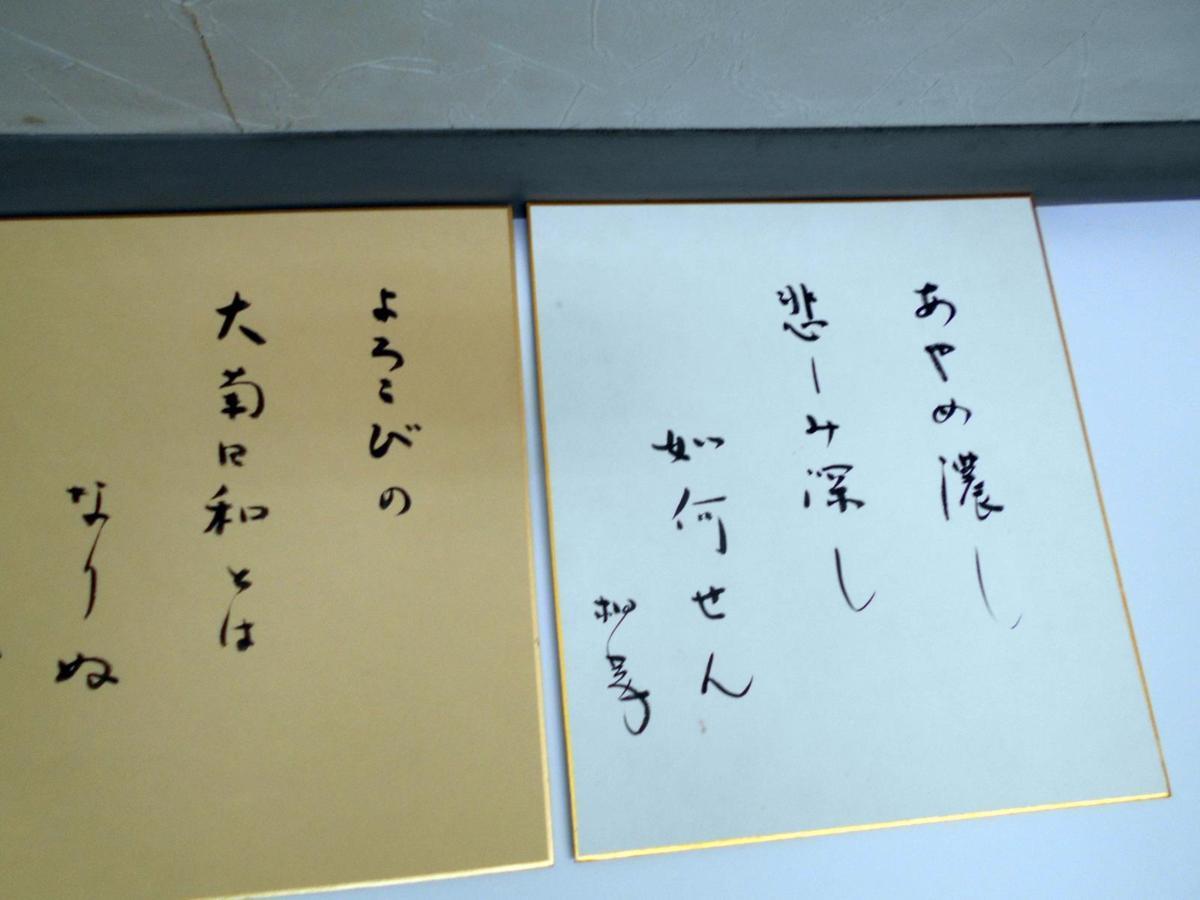 あやめ濃し
悲しみ深し
如何せん
よろこびの
大菊日和とは
なりぬ